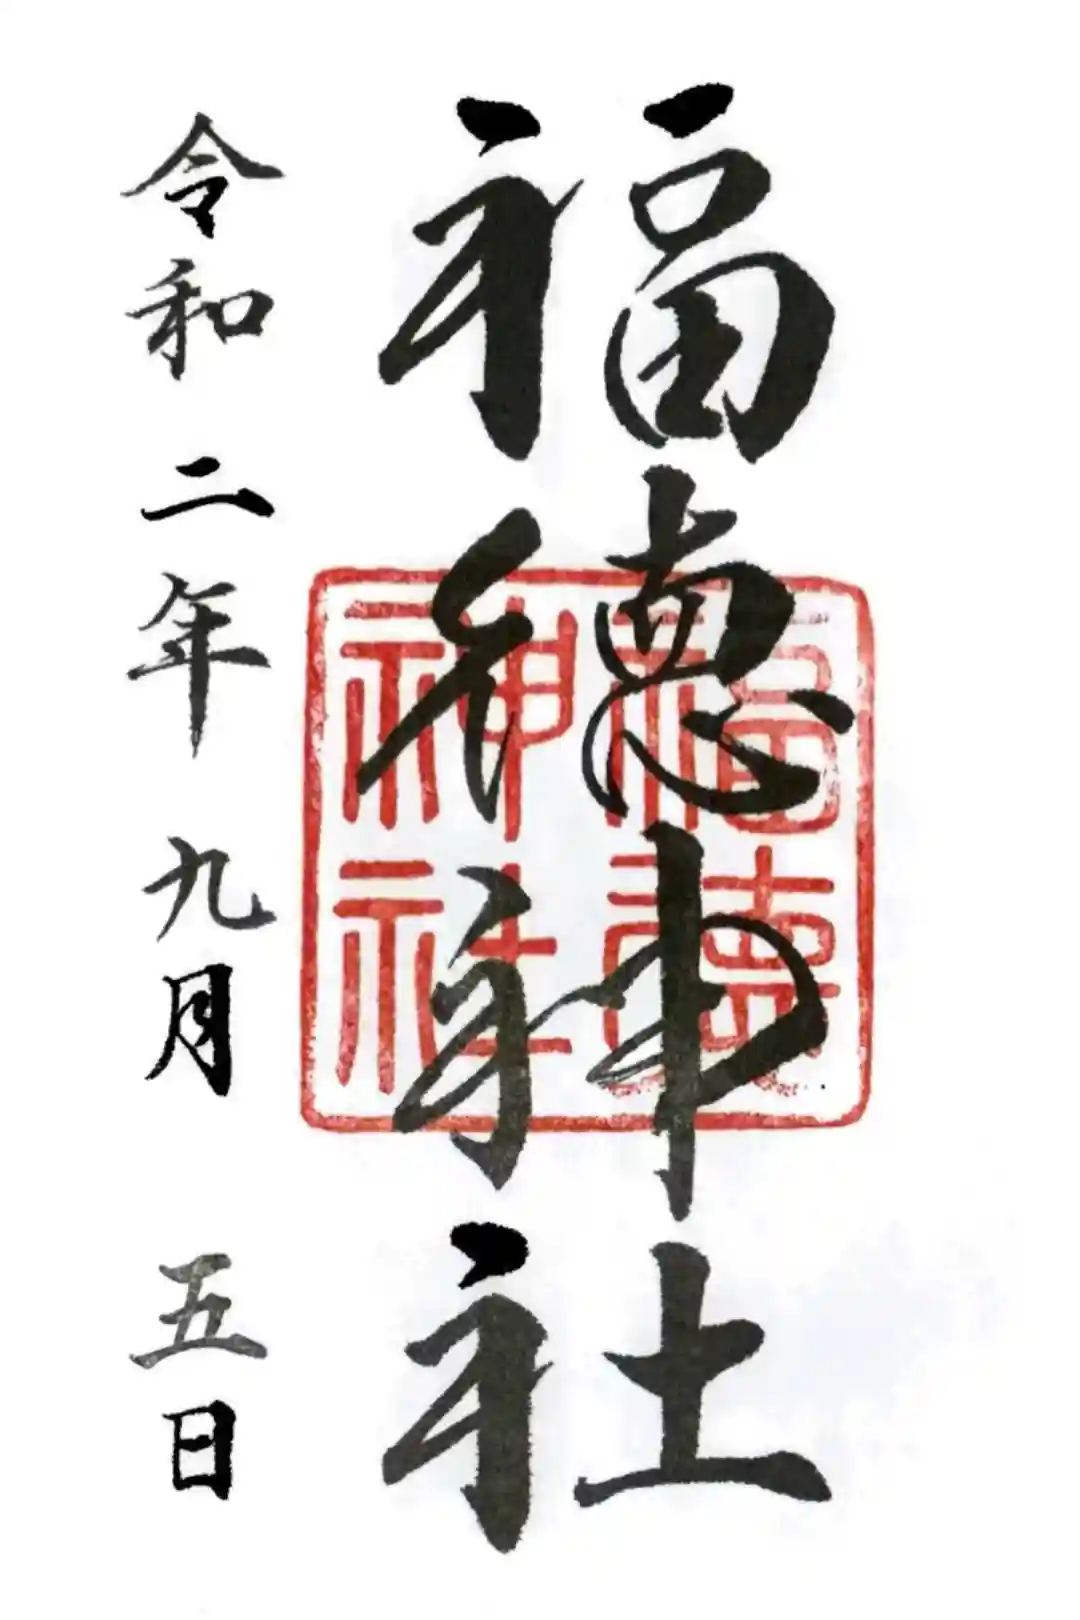 福徳神社
令和二年九月五日
福徳
神社